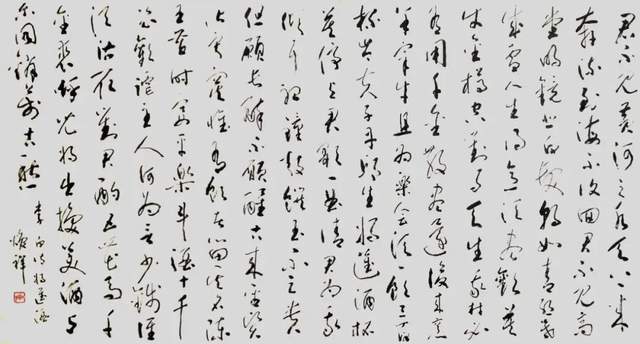 君不见黄河之水天上来
奔流到海不复回君不见高
堂明镜悲白发朝如青丝暮
成雪人生得意须尽欢莫
使金樽空对月天生我材必
有用千金散尽还复来烹
羊宰牛且为乐会须一饮三百
杯岑夫子丹丘生将进酒杯
莫停与君歌一曲请君为我
倾耳听钟鼓馔玉不足贵
但愿长醉不愿醒古来圣贤
皆寂寞惟有饮者留其名陈
王昔时宴平乐斗酒十千
恣欢谑主人何为言少钱径
须沽取对君酌五花马千
金裘呼儿将出换美酒与
尔同销万古愁
李白诗将进酒
焕祥